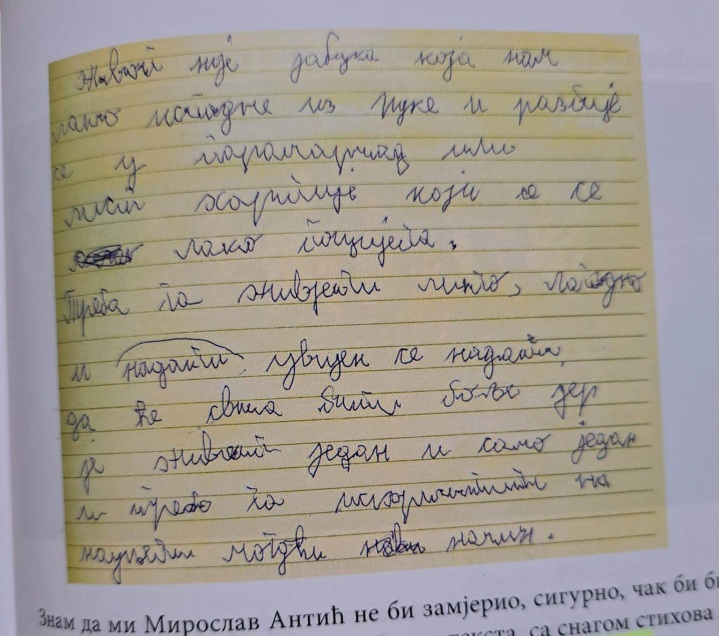 живот није јабука која нам
лако испадне из руке и разбије
се у парампарчад или
лист хартије који се се
лако поцијепа.
Треба га живјети мило, лагано
и надати увијек се надати
да ће свима бити боље јер
је живот један и само један
и треба га искористити на
најљепши могући начин.
Знам да ми Мирослав Антић не би замјерио, сигурно, чак би
са снагом стихова